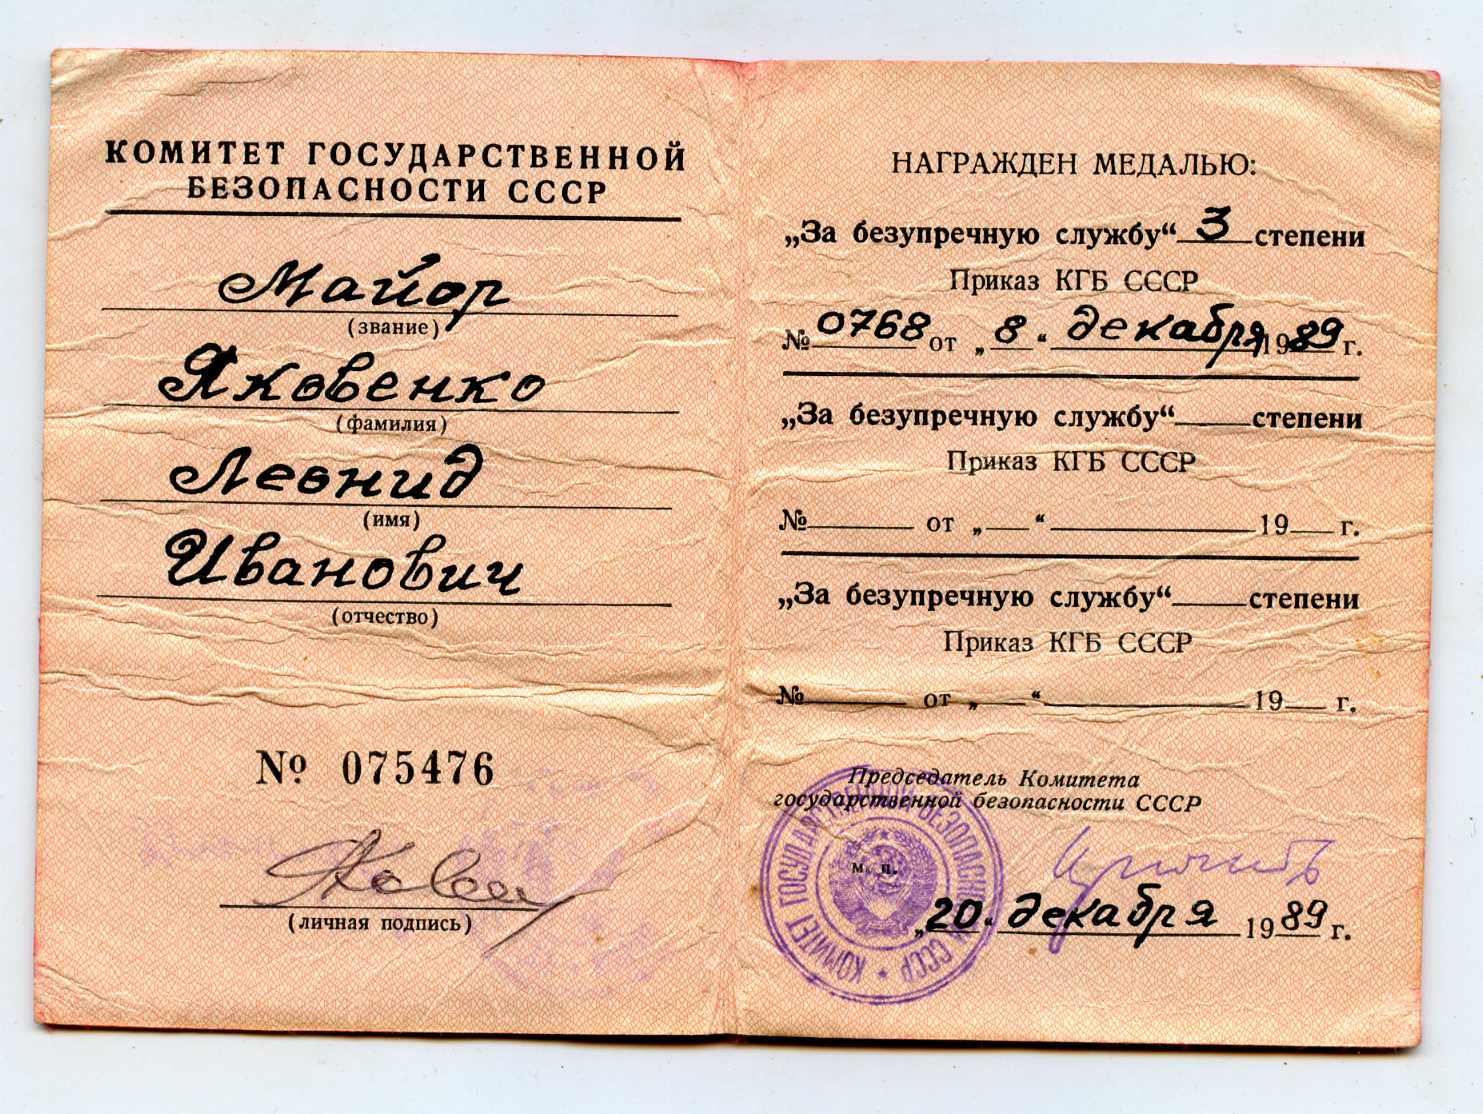 КОМИТЕТ ГОСУДАРСТВЕННОЙ
БЕЗОПАСНОСТИ СССР
Майор
(звание)
Яковенко
(фамилия)
Леонид
(имя)
Иванович
(отчество)
№ 075476
(личная подпись)
НАГРАЖДЕН МЕДАЛЬЮ:
„За безупречную службу“ 3 степени
Приказ КГБ СССР
№ 0768 от „ 8 “ декабря 1989 г.
„За безупречную службу“ степени
Приказ КГБ СССР
№ от „ “ 19 г.
„За безупречную службу“ степени
Приказ КГБ СССР
№ от „ “ 19 г.
Председатель Комитета
государственной безопасности СССР
м. п.
„20. декабря 1989 г.
КОМИТЕТ ГОСУДАРСТВЕННОЙ БЕЗОПАСНОСТИ СССР